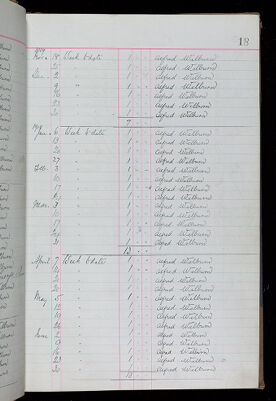 18
Nov. 18 Week to date 1 Alfred Wilburn
25 " 1 Alfred Wilburn
Dec. 2 " 1 Alfred Wilburn
9 " 1 Alfred Wilburn
16 " 1 Alfred Wilburn
23 " 1 Alfred Wilburn
30 " 1 Alfred Wilburn
7
Jan. 6 Week to date 1 Alfred Wilburn
13 " 1 Alfred Wilburn
20 " 1 Alfred Wilburn
27 " 1 Alfred Wilburn
Feb. 3 " 1 Alfred Wilburn
10 " 1 Alfred Wilburn
17 " 1 Alfred Wilburn
24 " 1 Alfred Wilburn
Mar. 3 " 1 Alfred Wilburn
10 " 1 Alfred Wilburn
17 " 1 Alfred Wilburn
24 " 1 Alfred Wilburn
31 " 1 Alfred Wilburn
13
April 7 Week to date 1 Alfred Wilburn
14 " 1 Alfred Wilburn
21 " 1 Alfred Wilburn
28 " 1 Alfred Wilburn
May 5 " 1 Alfred Wilburn
12 " 1 Alfred Wilburn
19 " 1 Alfred Wilburn
26 " 1 Alfred Wilburn
June 2 " 1 Alfred Wilburn
9 " 1 Alfred Wilburn
16 " 1 Alfred Wilburn
23 " 1 Alfred Wilburn
30 " 1 Alfred Wilburn
13